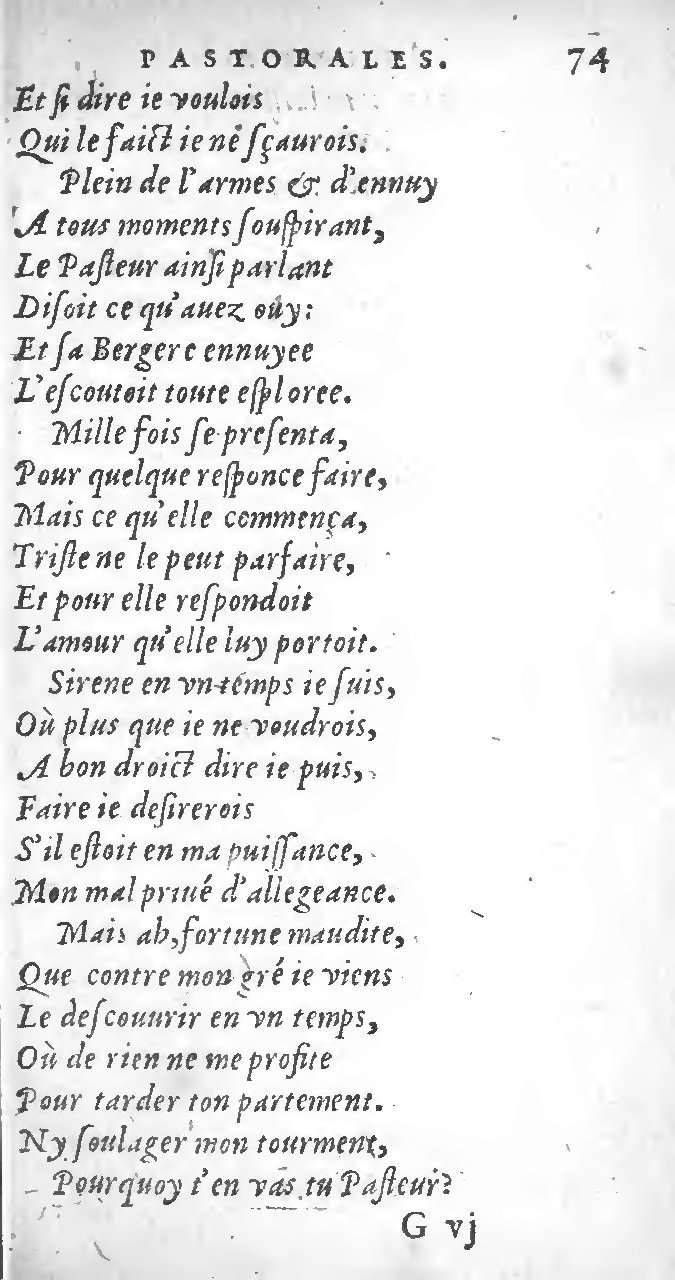 PASTORALES. 74
Et ſi dire ie voulois
Qui le faict ie ne ſçaurois.
Plein de l'armes & d'ennuy
A tous moments ſouſpirant,
Le Paſteur ainſi parlant
Diſoit ce qu'auez ouy:
Et ſa Bergere ennuyee
L'eſcoutoit toute eſploree.
Mille fois ſe preſenta,
Pour quelque reſponce faire,
Mais ce qu'elle commença,
Triſte ne le peut parfaire,
Et pour elle reſpondoit
L'amour qu'elle luy portoit.
Sirene en vn temps ie ſuis,
Où plus que ie ne voudrois,
A bon droict dire ie puis,
Faire ie deſirerois
S'il eſtoit en ma puiſſance,
Mon mal priué d'allegeance.
Mais ah, fortune maudite,
Que contre mon gré ie viens
Le deſcouurir en vn temps,
Où de rien ne me profite
Pour tarder ton partement.
Ny ſoulager mon tourment,
Pourquoy t'en vas tu Paſteur?
G vj